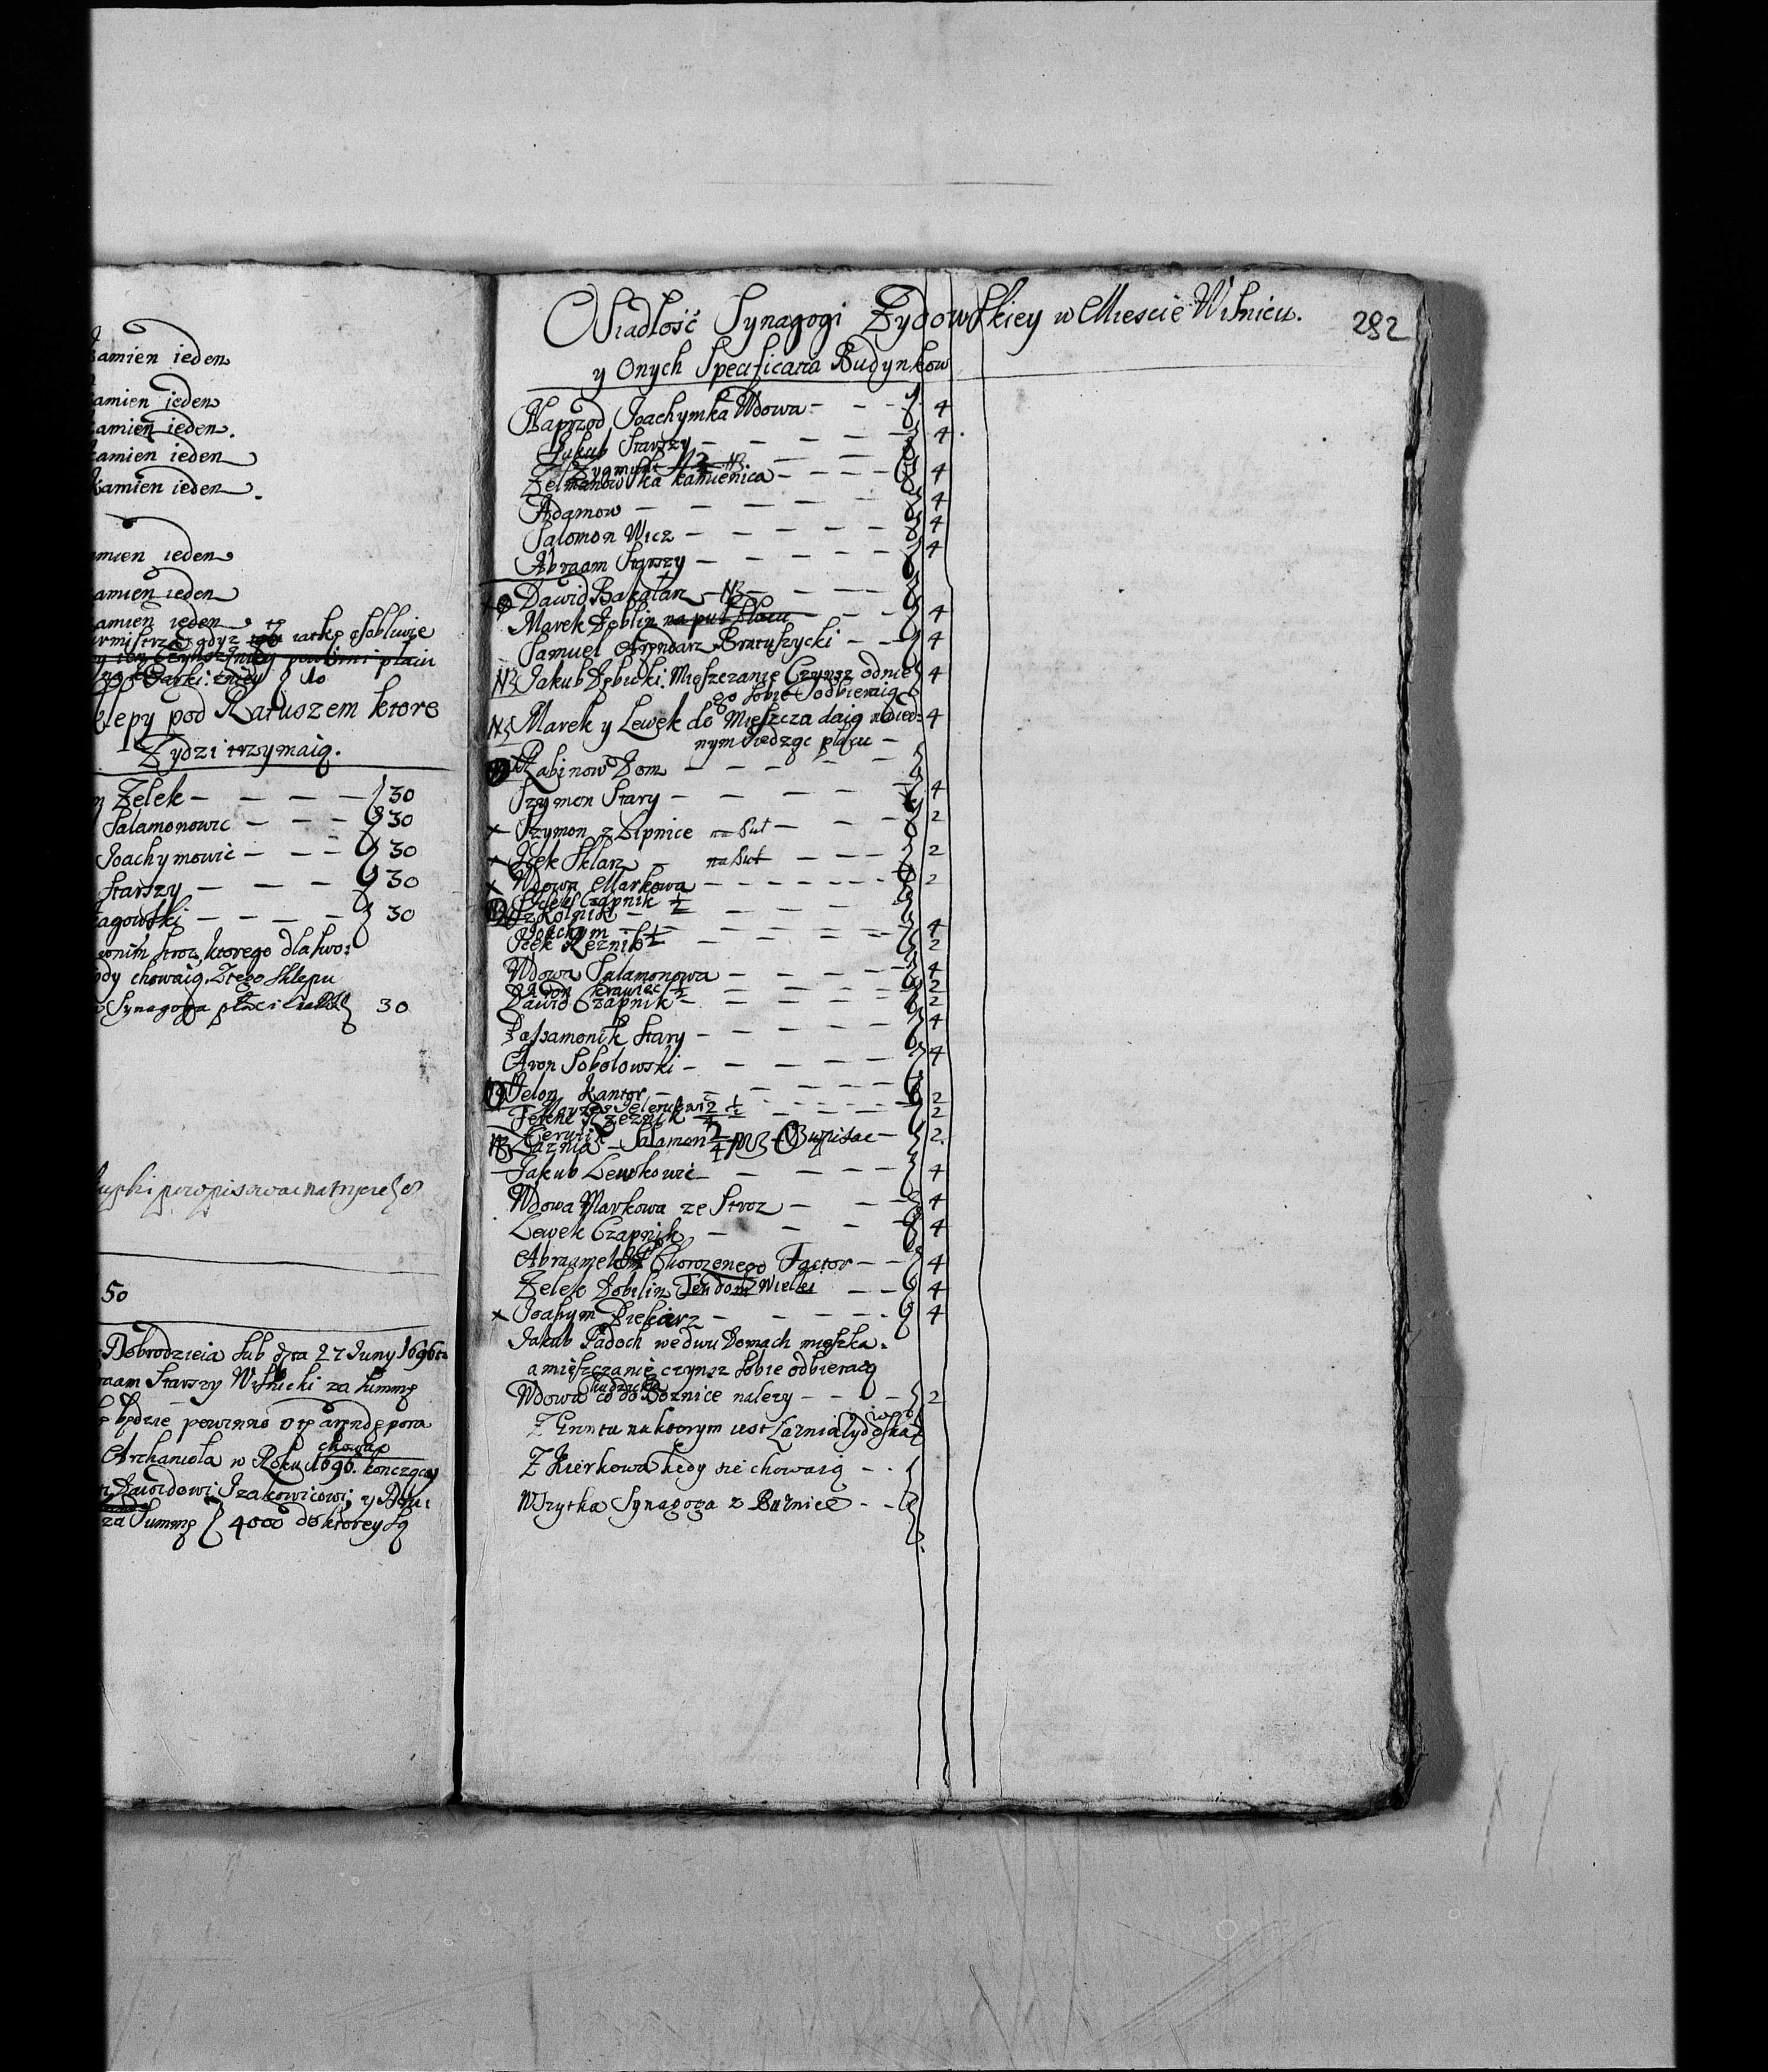 amien ieden
amien ieden
amien ieden.
amien ieden
amien ieden.
mien ieden
amien ieden
amien ieden
urmistrz gdyz iatkę osobliwie
10
klepy pod Ratuszem ktore
Zydzi trzymaią.
Zelek — — — — 30
Salamonowic — — — 30
Joachymowic — — — 30
Starszy — — — 30
agowski — — — — 30
stroz, ktorego dla two:
ody chowaią. Z tego sklepu
Synagoga płaci 30
50
Dobrodzieia sub data 27 Juny 1696
raam Starszy Wisnicki za summę
będzie powinno arendę pora
chowa
Archaniola w Roku 1696. kończący
Dawidowi Izakowicowi, y
za Summę 4000 do ktorey są
Osiadłość Synagogi Zydowskiey w Miescie Wisniczu. 282
y Onych Specificatia Budynkow
Naprzod Joachymka Wdowa — — 4
Jakub Starszy — — — — 4.
Zygmunt
Zelmanowska kamienica — — — — 4
Adamow — — — — — 4
Salomon Wicz — — — — — 4
Abraam Starszy — — — — 4
Dawid Bakałarz — NB — — —
Marek Doblin na puł placu — — 4
Samuel Arendarz Bratuszycki — — 4
NB Jakub Dębicki. Mieszczanie Czynsz od nie 4
go sobie odbieraią
NB Marek y Lewek do Mieszcza daią 4
nym siedząc placu —
Rabinow Dom — — — — —
Szymon Stary — — — — — 4
x Szymon z Lipnice na puł — — — 2
x Icek Sklarz — na puł — — — 2
x Wdowa Markowa — — — — — 2
Czapnik ½
Szkolnik — — — —
Joachym — — — — 4
Icek Rzeznik ½ — — — — 2
Wdowa Salamonowa — — — — 4
Aron Krawiec ½ — — — 2
Dawid Czapnik — — — — 2
Passamonik Stary — — — — 4
Aron Sobolowski — — — — — 4
Jelon Kantor — — — — — 2
Rzeznik 2
NB Łaznia — Salamon wpisac — 2.
Jakub Lewkowic — — — — 4
Wdowa Markowa ze Stroz — — — 4
Lewek Czapnik — — — 4
Abramek Chorozenego Factor — — 4
Zelek Dobilin Ten dom Wielki — — 4
x Joachym Piekarz — — — — 4
Jakub Padoch we dwu Domach mieszka.
a mieszczanie czynsz sobie odbieraią
Wdowa co do Boznice nalezy — — — 2
Z Gruntu na ktorym iest Łaznia Zydoska
Z Kierkowa kędy sie chowaią — .
Wszytka Synagoga z Boznice — —